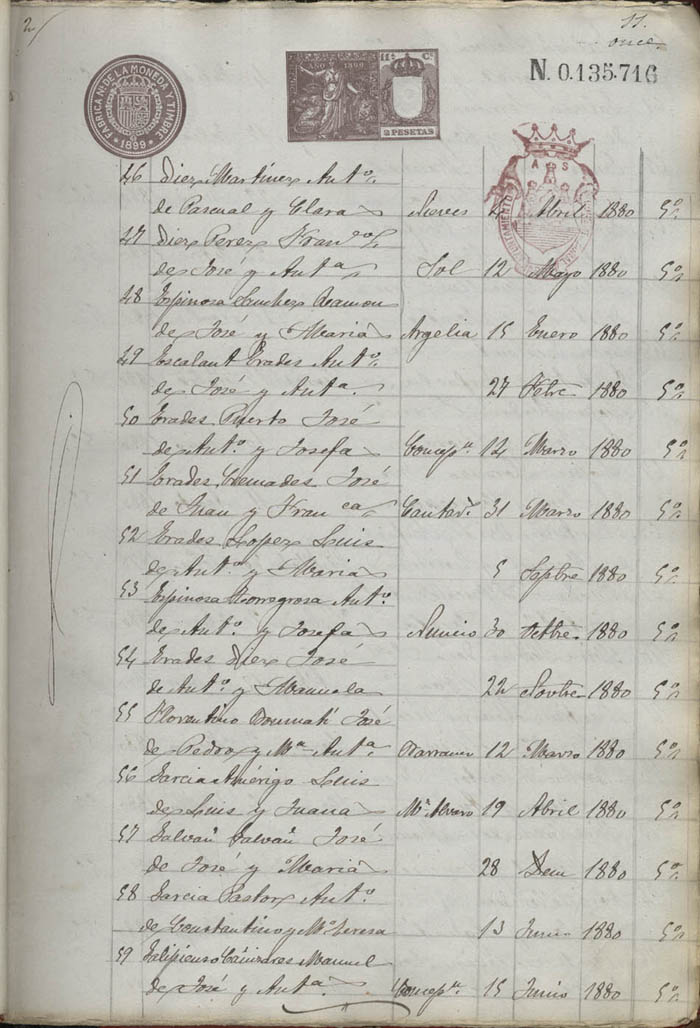 2
11.
once
FABRICA Nl. DE LA MONEDA Y TIMBRE
1899
AÑO 1899
11ª Cª
2 PESETAS
N.0.135.716
A S
AYUNTAMIENTO
46 Diez Martinez Antº
de Pascual y Clara Nueves 4 Abril 1880 5º
47 Diez Perez Franco
de José y Antª Sol 12 Mayo 1880 5º
48 Espinosa Sanchez Ramon
de José y Maria Argelia 15 Enero 1880 5º
49 Escalant Erades Antº
de José y Antª 27 Febre 1880 5º
50 Erades Puerto José
de Antº y Josefa Concepn 14 Marzo 1880 5º
51 Erades Cremades José
de Juan y Franca 31 Marzo 1880 5º
52 Erades Lopez Luis
de Antº y Maria 5 Septbre 1880 5º
53 Espinosa Torregrosa Antº
de Antº y Josefa Nuncio 30 Octbre 1880 5º
54 Erades Diez José
de Antº y Manuela 22 Novbre 1880 5º
55 Florentino José
de Pedro y Mª Antª 12 Marzo 1880 5º
56 Garcia Amérigo Luis
de Luis y Juana Mª Alvaro 19 Abril 1880 5º
57 Galvañ Galvañ José
de José y Maria 28 Idem 1880 5º
58 Garcia Pastor Antº
de Constantino y Mª Teresa 13 Junio 1880 5º
59 Manuel
de José y Antª Concepn 15 Junio 1880 5º